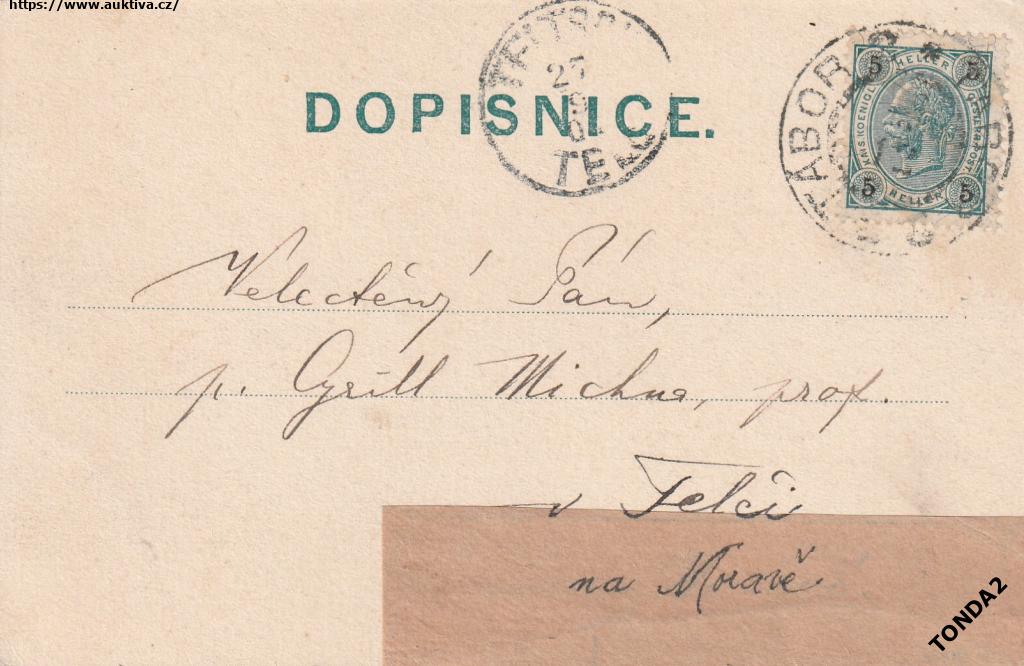 https://www.auktiva.cz/
DOPISNICE.
TELTSCH
27
9
TELČ
TÁBOR
5 HELLER 5
KAIS. KOENIGL. OESTERR. POST.
5 HELLER 5
Velectěný Pán,
p. Cyrill Michna, prof.
v Telči
na Moravě
TONDA2